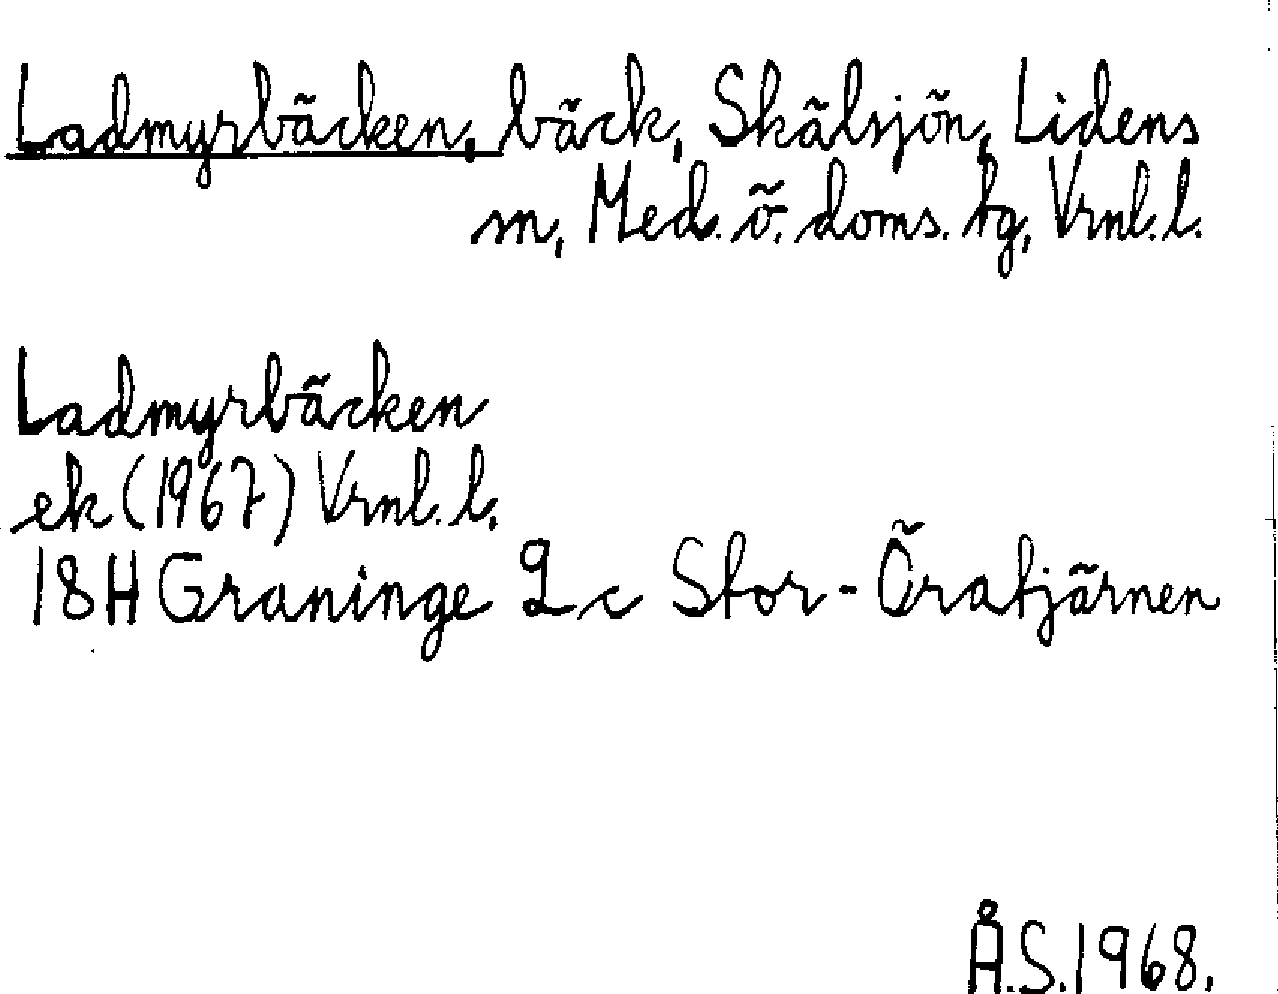 Ladmyrbäcken, bäck, Skälsjön, Lidens
sn, Med. ö. doms. tg, Vrnl. l.
Ladmyrbäcken
ek (1967) Vrnl. l.
18H Graninge 2c Stor-Öratjärnen
Å.S. 1968.